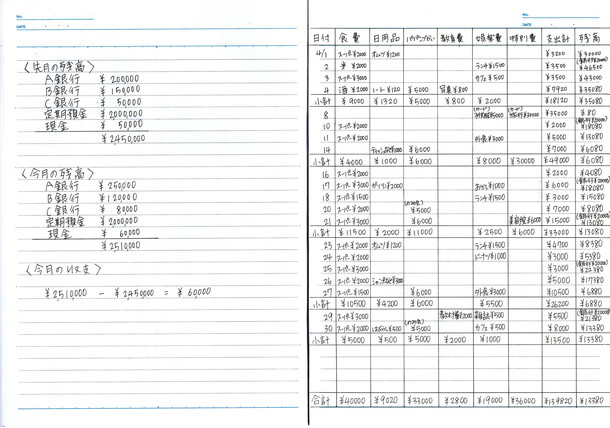 No.
DATE
〈先月の残高〉
A銀行 ¥200,000
B銀行 ¥150,000
C銀行 ¥50,000
定期積金 ¥2,000,000
現金 ¥50,000
¥2,450,000
〈今月の残高〉
A銀行 ¥250,000
B銀行 ¥120,000
C銀行 ¥80,000
定期積金 ¥2000,000
現金 ¥60,000
¥2,510,000
〈今月の収支〉
¥2,510,000 − ¥2,450,000 = ¥60,000
No.
DATE
日付 食費 日用品 教育費 特別費 支出計 残高
4/1 スーパー¥2000 オムツ¥1200 ¥3200 ¥30000
2 米¥2000 ランチ¥1500 ¥3500 ¥46500
3 スーパー¥3000 カフェ¥500 ¥3500 ¥43000
4 酒¥2000 ノート¥120 ¥5000 写真¥800 ¥7920 ¥35080
小計 ¥9000 ¥1320 ¥5000 ¥800 ¥2000 ¥18120 ¥35080
8 ¥35000 ¥80
10 スーパー¥2000 ¥2000 ¥18080
11 スーパー¥2000 外食¥3000 ¥5000 ¥13080
14 ¥6000 ¥7000 ¥6080
小計 ¥4000 ¥1000 ¥6000 ¥8000 ¥30000 ¥49000 ¥6080
16 スーパー¥2000 ¥2000 ¥4080
17 スーパー¥3000 ¥6000
18 スーパー¥1500 ランチ¥1500 ¥3000 ¥15080
20 スーパー¥2000 ¥5000 ¥7000 ¥8080
21 スーパー¥3000 ¥6000 美容院¥6000 ¥15000 ¥13080
小計 ¥11500 ¥2000 ¥11000 ¥2500 ¥6000 ¥33000 ¥13080
23 スーパー¥2000 オムツ¥1200 ランチ¥1500 ¥4700 ¥8380
24 スーパー¥2000 ドーナツ¥1000 ¥3000 ¥5380
25 スーパー¥3000 ¥3000 ¥22380
26 スーパー¥2000 ¥5000 ¥17380
27 スーパー¥1500 ¥6000 外食¥3000 ¥10500 ¥6880
小計 ¥10500 ¥4200 ¥6000 ¥5500 ¥26200 ¥6880
29 スーパー¥3000 雑誌¥500 ¥5500 ¥21380
30 スーパー¥2000 ¥5000 カフェ¥500 ¥8000 ¥13380
小計 ¥5000 ¥500 ¥5000 ¥2000 ¥1000 ¥13500 ¥13380
合計 ¥40000 ¥9020 ¥33000 ¥2800 ¥19000 ¥36000 ¥139820 ¥13380